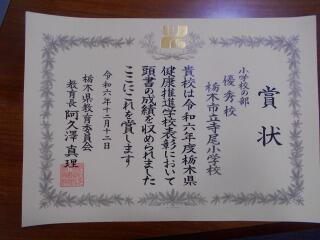 賞状
小学校の部
優秀校
栃木市立寺尾小学校
貴校は令和六年度栃木県
健康推進学校表彰において
頭書の成績を収められました
ここにこれを賞します
令和六年十二月十二日
栃木県教育委員会
教育長 阿久澤真理